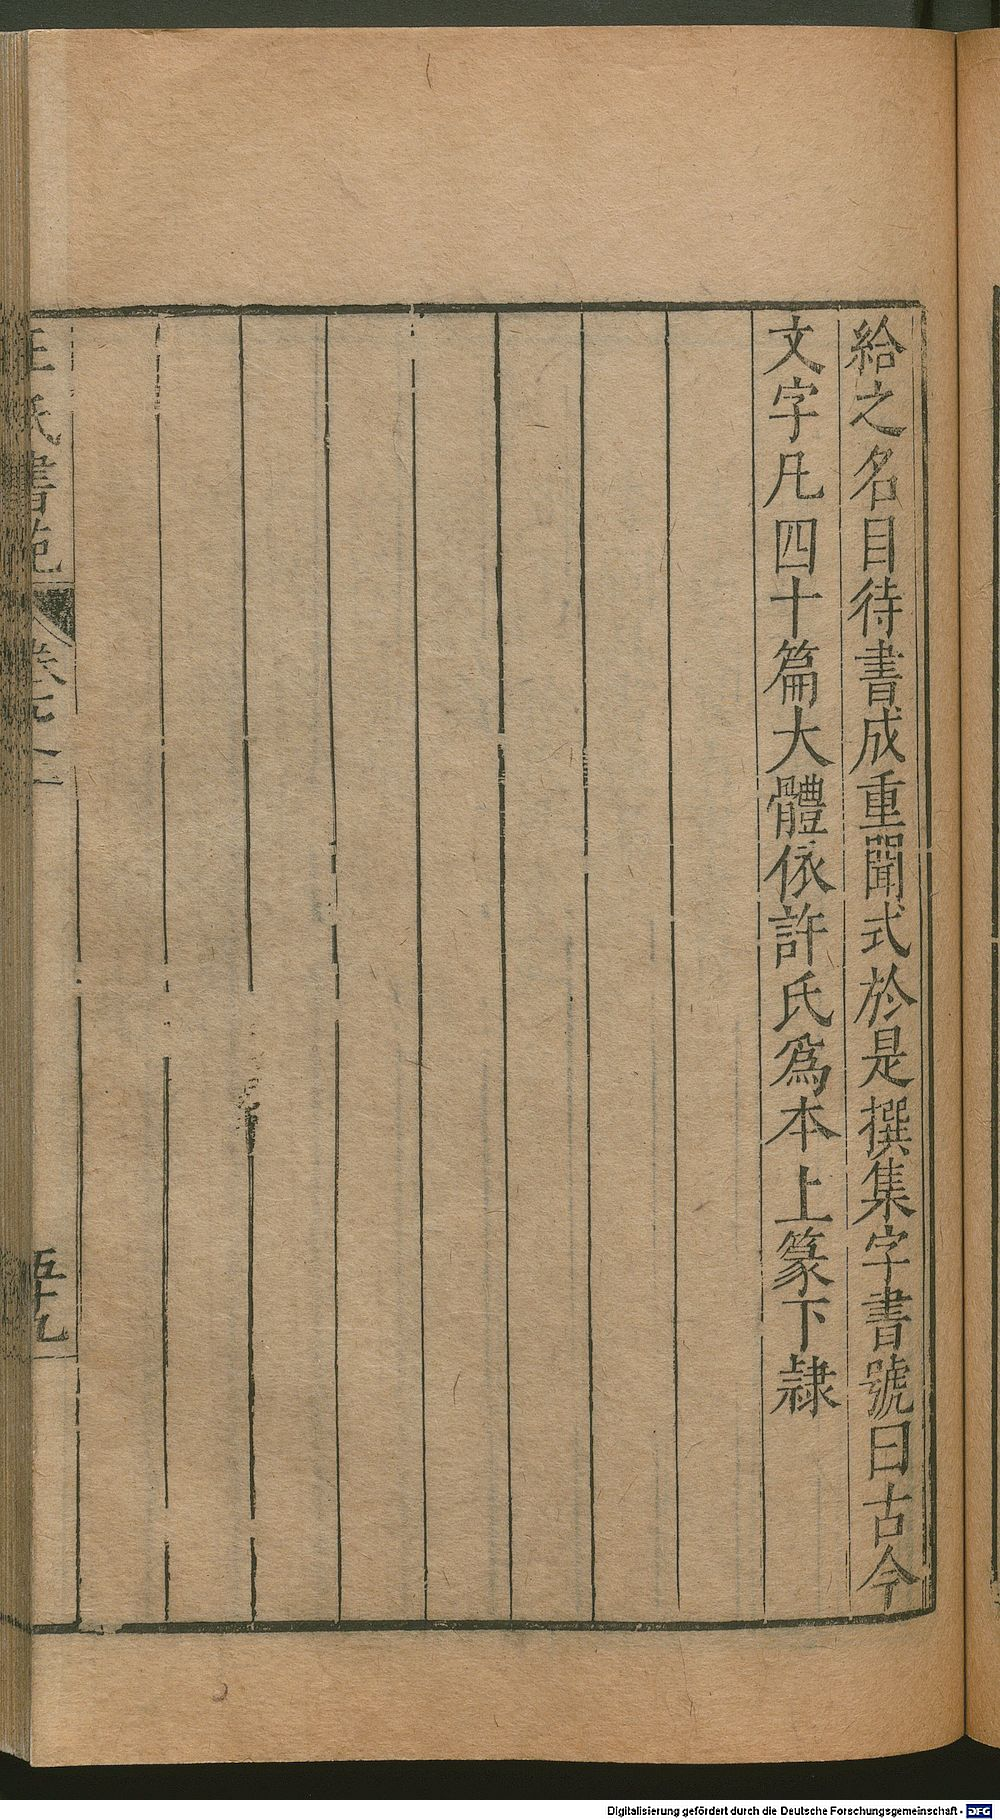 給之名目待書成重聞式於是撰集字書號曰古今
文字凡四十篇大體依許氏爲本上篆下隷
王氏書苑
卷之
五十九
Digitalisierung gefördert durch die Deutsche Forschungsgemeinschaft - DFG